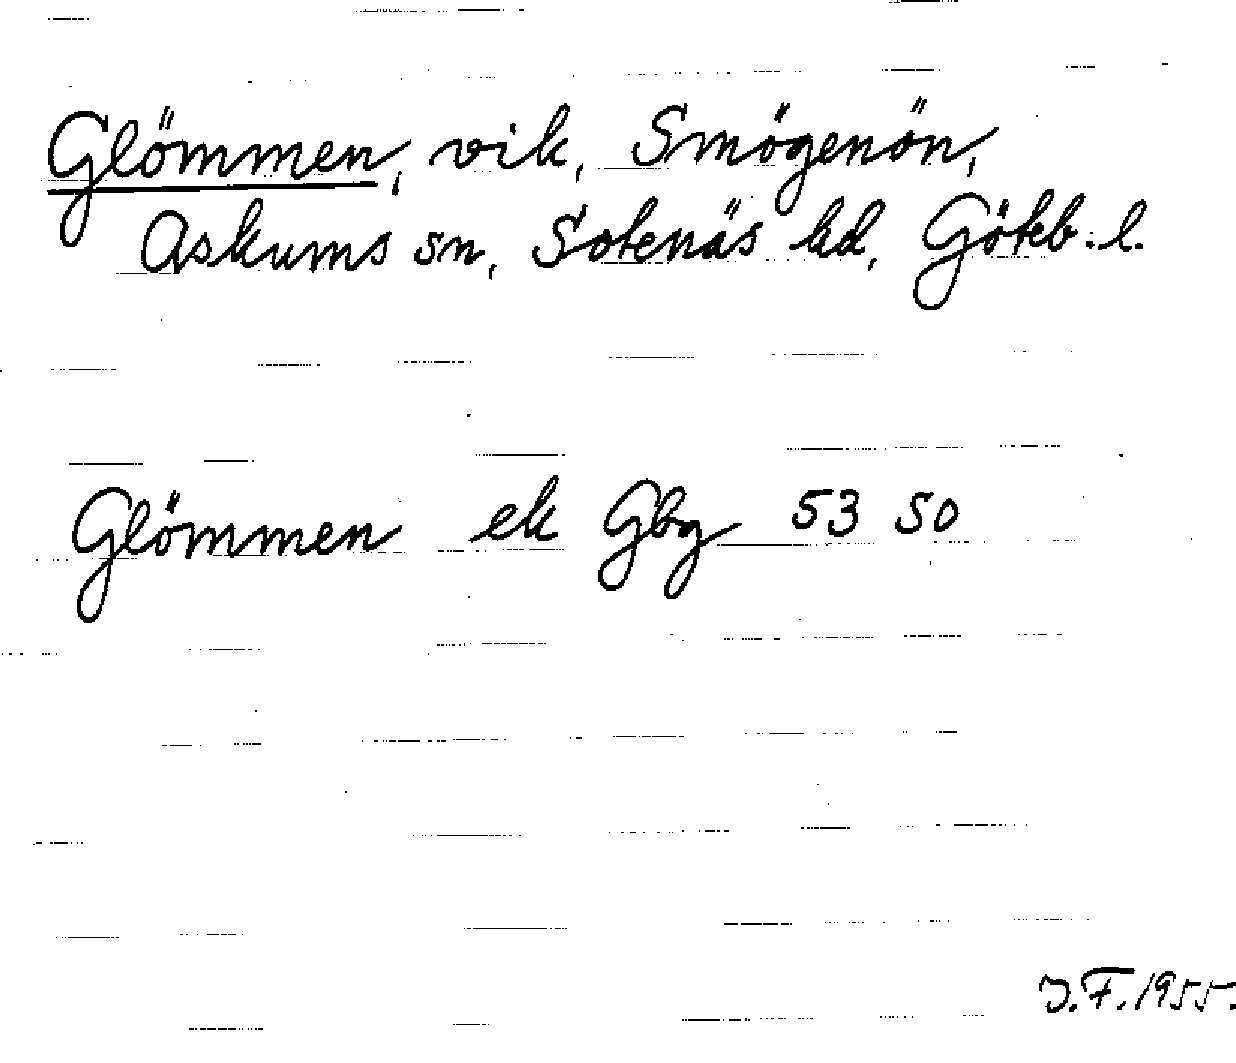 Glömmen, vik, Smögenön,
Askums sn, Sotenäs hd, Göteb. l.
Glömmen ek Gbg 53 50
J.F. 1955.